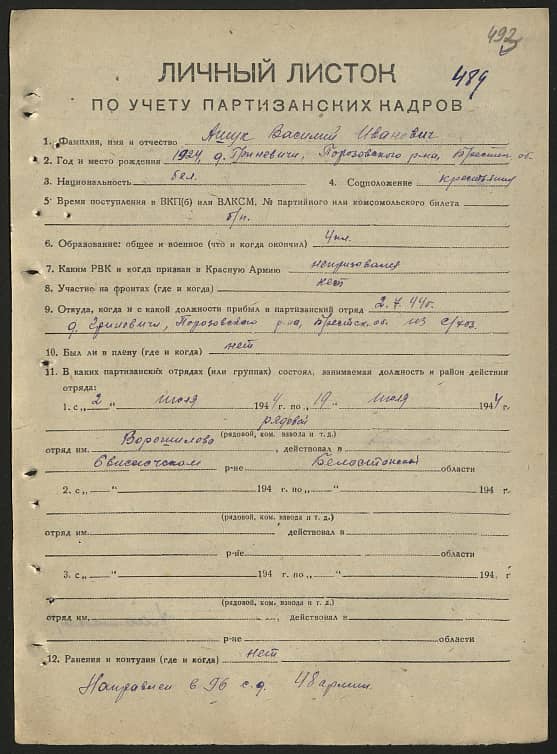 492
489
ЛИЧНЫЙ ЛИСТОК
ПО УЧЕТУ ПАРТИЗАНСКИХ КАДРОВ
1. Фамилия, имя и отчество Ашук Василий Иванович
2. Год и место рождения 1924, д. Гриневичи, Порозовского р-на, Брестск. об.
3. Национальность бел. 4. Соцположение крестьянин
5. Время поступления в ВКП(б) или ВЛКСМ, № партийного или комсомольского билета
б/п.
6. Образование: общее и военное (что и когда окончил) 4 кл.
7. Каким РВК и когда призван в Красную Армию непризовался
8. Участие на фронтах (где и когда) нет
9. Откуда, когда и с какой должности прибыл в партизанский отряд 2.7.44г.
д. Гриневичи, Порозовского р-на, Брестск. об. из с/хоз.
10. Был ли в плену (где и когда) нет
11. В каких партизанских отрядах (или группах) состоял, занимаемая должность и район действия
отряда:
1. с „2“ июля 1944 г. по „19“ июля 1944 г.
рядовой
(рядовой, ком. взвода и т. д.)
отряд им. Ворошилова, действовал в
Свислочском р-не Белостокской области
2. с „ “ 194 г. по „ “ 194 г.
(рядовой, ком. взвода и т. д.)
отряд им. действовал в
р-не области
3. с „ “ 194 г. по „ “ 194 г
(рядовой, ком. взвода и т. д.)
отряд им. , действовал в
р-не области
12. Ранения и контузии (где и когда) нет
Направлен в 96 с.д. 48 армии.